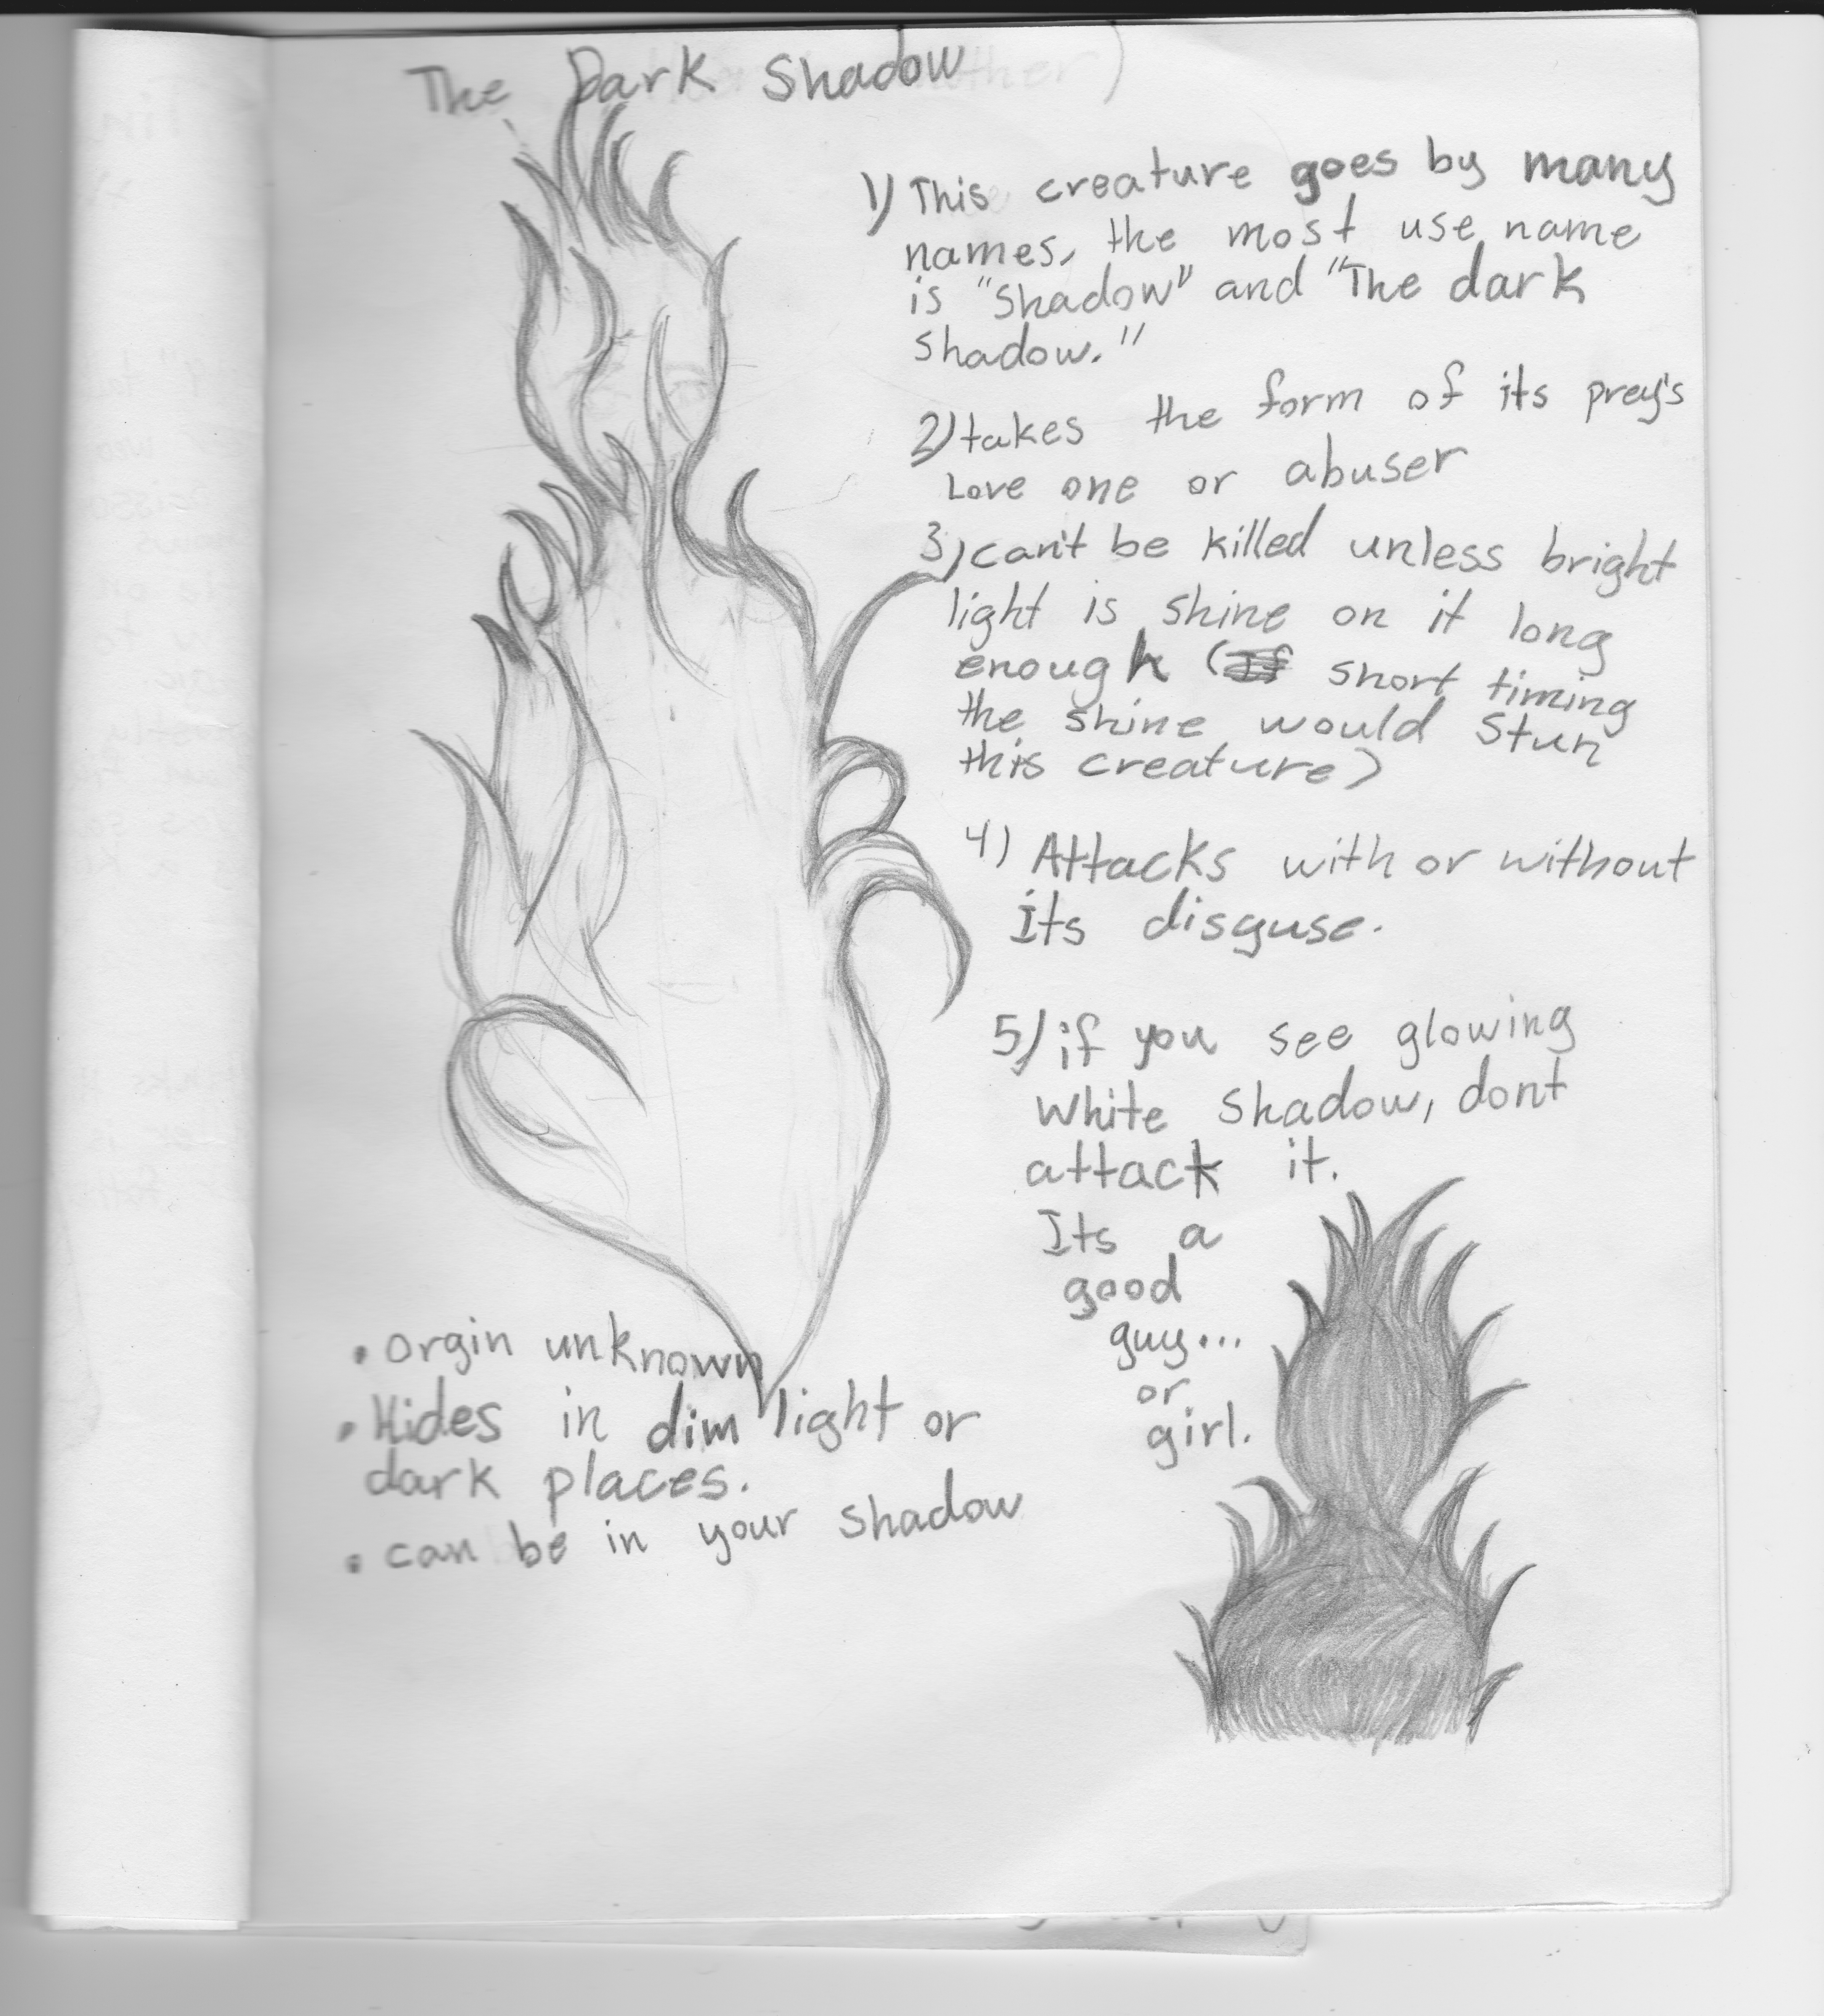 The Dark Shadow
1) This creature goes by many
names, the most use name
is "Shadow" and "The dark
shadow."
2) takes the form of its prey's
Love one or abuser
3) can't be killed unless bright
light is shine on it long
enough (If short timing
the shine would stun
this creature)
4) Attacks with or without
Its disguse.
5) if you see glowing
White shadow, dont
attack it.
Its a
good
guy...
or
girl.
• orgin unknown
• Hides in dim light or
dark places.
• can be in your shadow